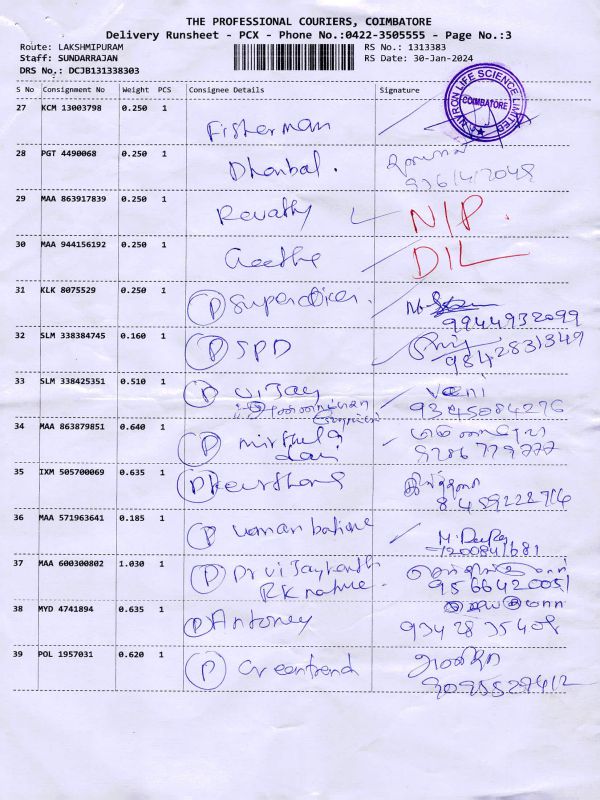 THE PROFESSIONAL COURIERS, COIMBATORE
Delivery Runsheet - PCX - Phone No.:0422-3505555 - Page No.:3
Route: LAKSHMIPURAM RS No.: 1313383
Staff: SUNDARRAJAN RS Date: 30-Jan-2024
DRS No.: DCJB131338303
S No Consignment No Weight PCS Consignee Details Signature
NYRON LIFE SCIENCE LIMITED
COIMBATORE
27 KCM 13003798 0.250 1 Fisherman
28 PGT 4490068 0.250 1 Dhanbal.
29 MAA 863917839 0.250 1 Revathy N/P.
30 MAA 944156192 0.250 1 Geetha D/L
31 KLK 8075529 0.250 1 P
9944932099
32 SLM 338384745 0.160 1 P SPD
9842831349
33 SLM 338425351 0.510 1 P Vijay Vani
9345084276
34 MAA 863879851 0.640 1 P
35 IXM 505700069 0.635 1 P
36 MAA 571963641 0.185 1 P
7200841681
37 MAA 600300802 1.030 1 P Dr Vijaykanth
RK nature. 9566420051
38 MYD 4741894 0.635 1 P Antoney
9342835408
39 POL 1957031 0.620 1 P Greentrend
9095529412